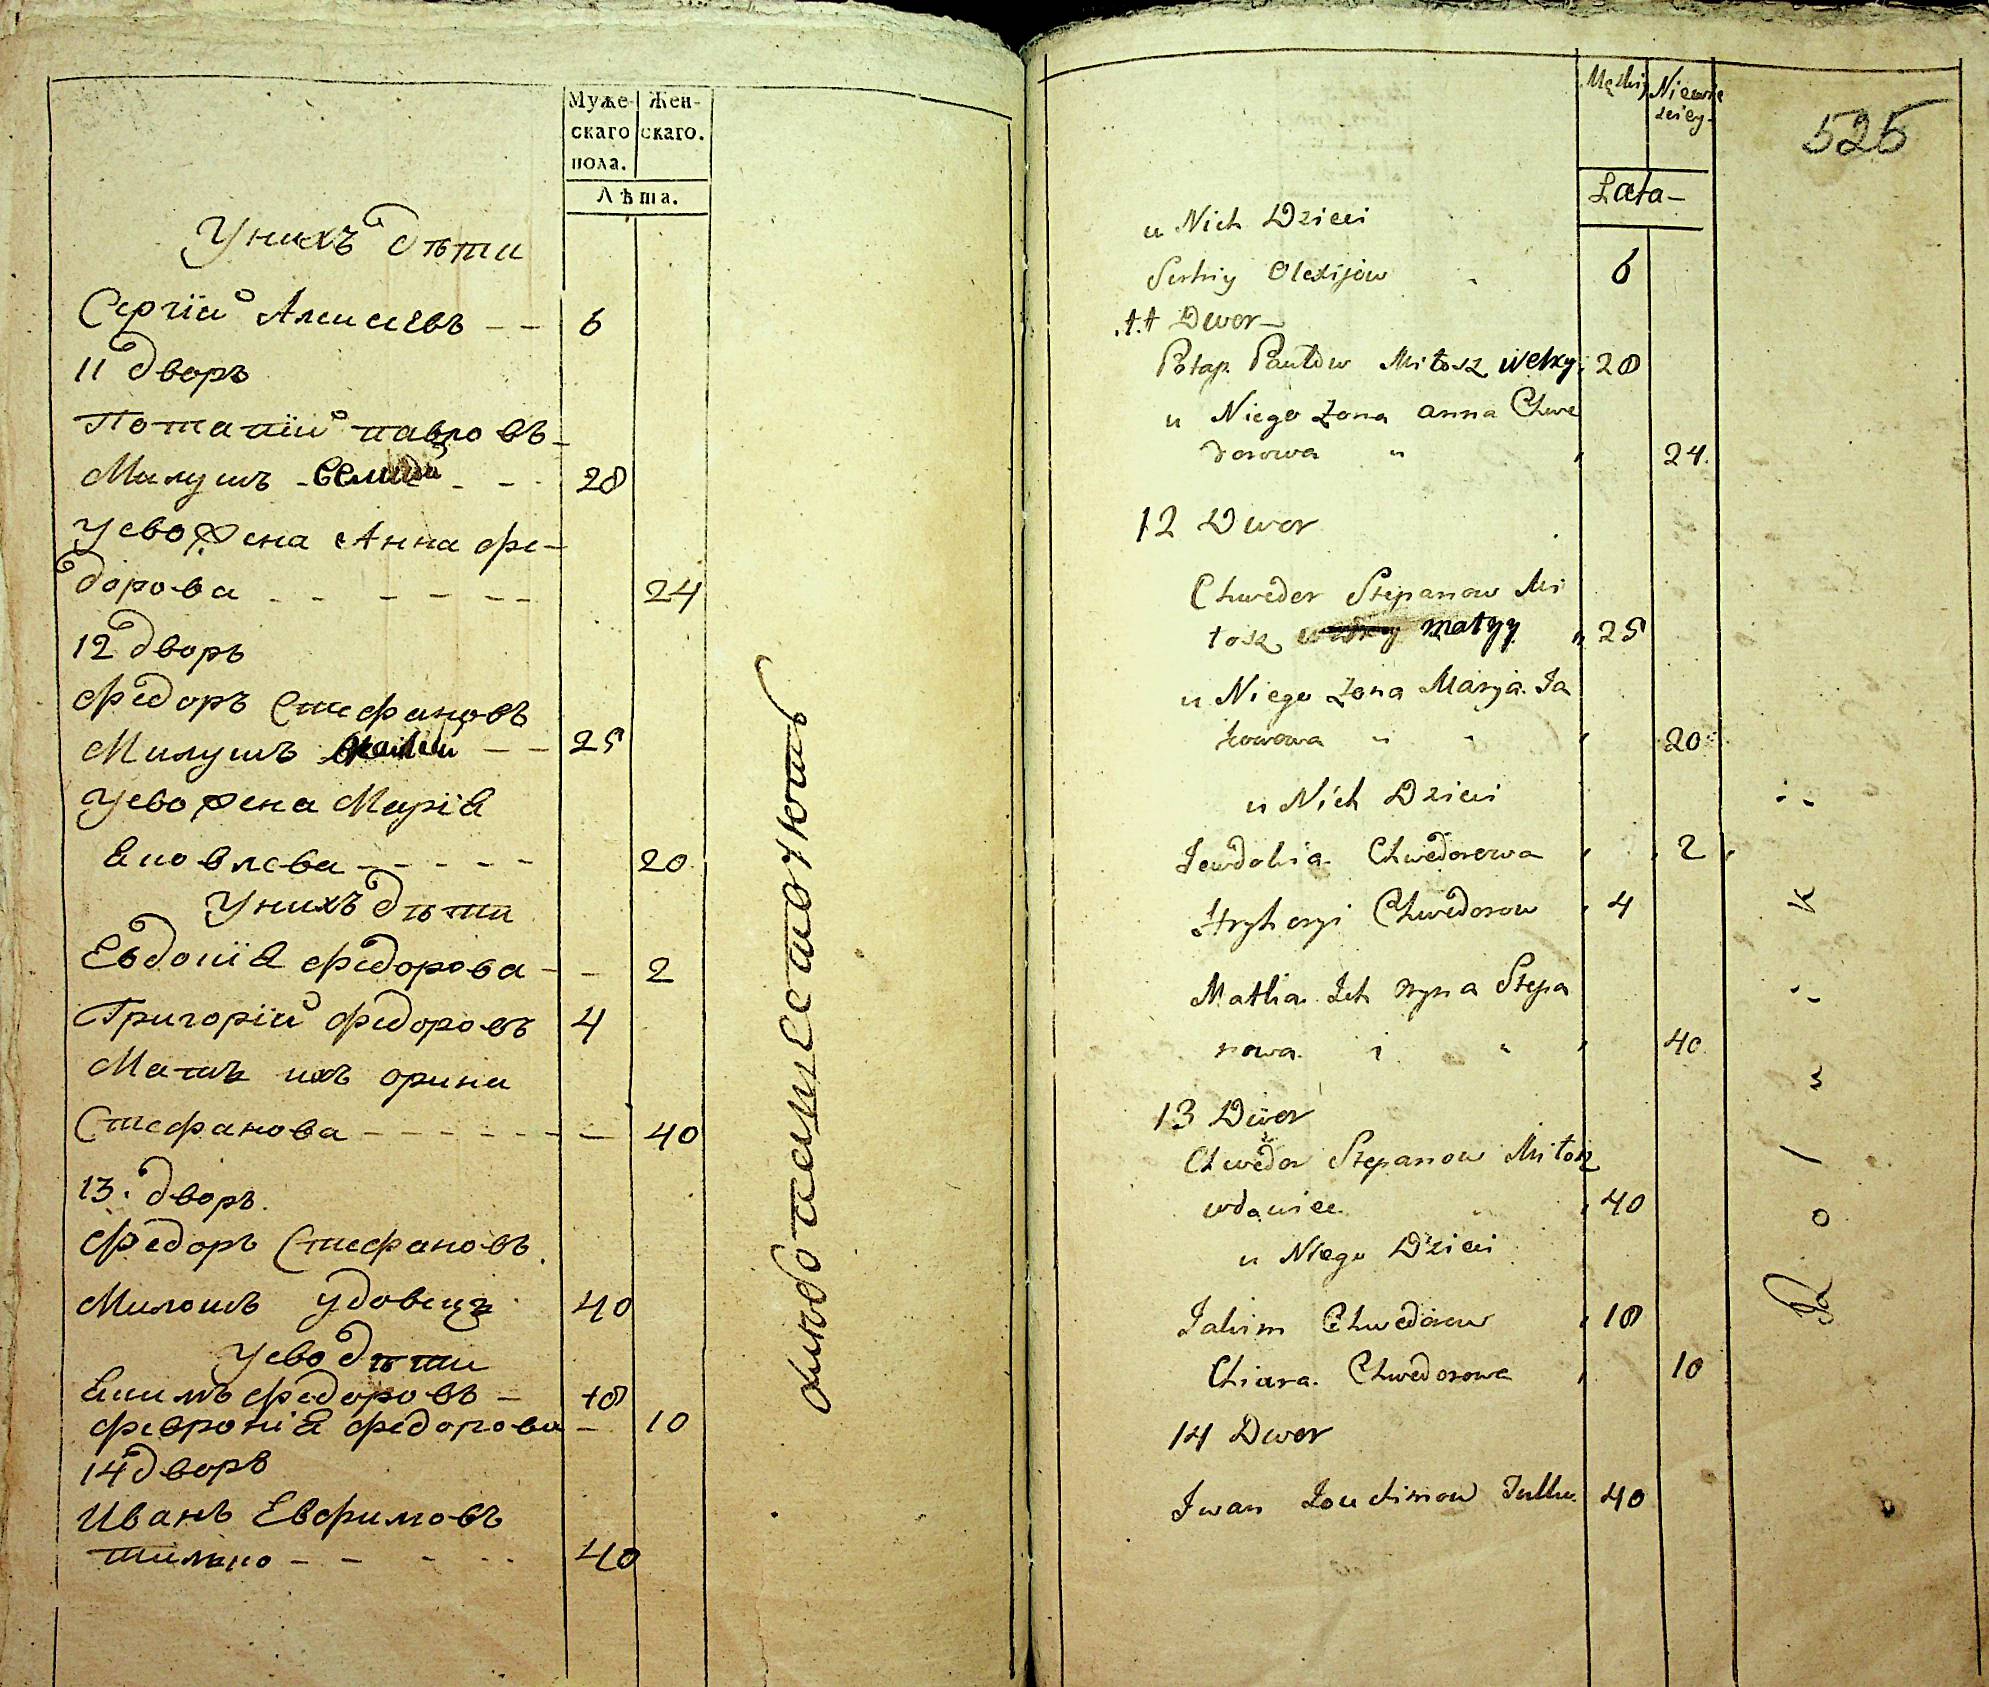 Муже-
скаго
пола.
Жен-
скаго.
Лѣта.
Унихъ дѣти
Сергiй Алексѣевъ - - 6
11 дворъ
Потапiй павловъ -
Милушъ - - - 28
Уево жена Анна фе-
дорова - - - - - - 24
12 дворъ
Федоръ Стефановъ
Милушъ - - 25
Уево жена Марiя
Яковлева - - - - - 20
Унихъ дѣти
Евдокiя федорова - - 2
Григорiй федоровъ 4
Мать ихъ орина
Стефанова - - - - - - - 40
13. дворъ.
Федоръ Стефановъ.
Милошъ удовецъ 40
Уево дѣти
Якимъ федоровъ - 18
феvронiя федорова - 10
14 дворъ
Иванъ Евфимовъ
- - - - 40
Męskiey
Niewie
sciey-
525
Lata-
u Nich Dzieci
Serhiy Olexijow 6
11 Dwor-
Potap Pawłow Miłosz welky 28
u Niego Żona anna Chwe
dorowa 24.
12 Dwor
Chweder Stepanow Mi
łosz małyy 25
u Niego Żona Marya Ja
kowowa 20
u Nich Dzieci
Jewdokia Chwedorowa 2
Hryhoryi Chwedorow 4
Matka Ich Oryna Stepa
nowa 40
13 Dwor
Chwedor Stepanow Miłosz
wdowiec 40
u Niego Dzieci
Jakim Chwedorow 18
Chiwra Chwedorowa 10
14 Dwor
Iwan Jouchimow 40